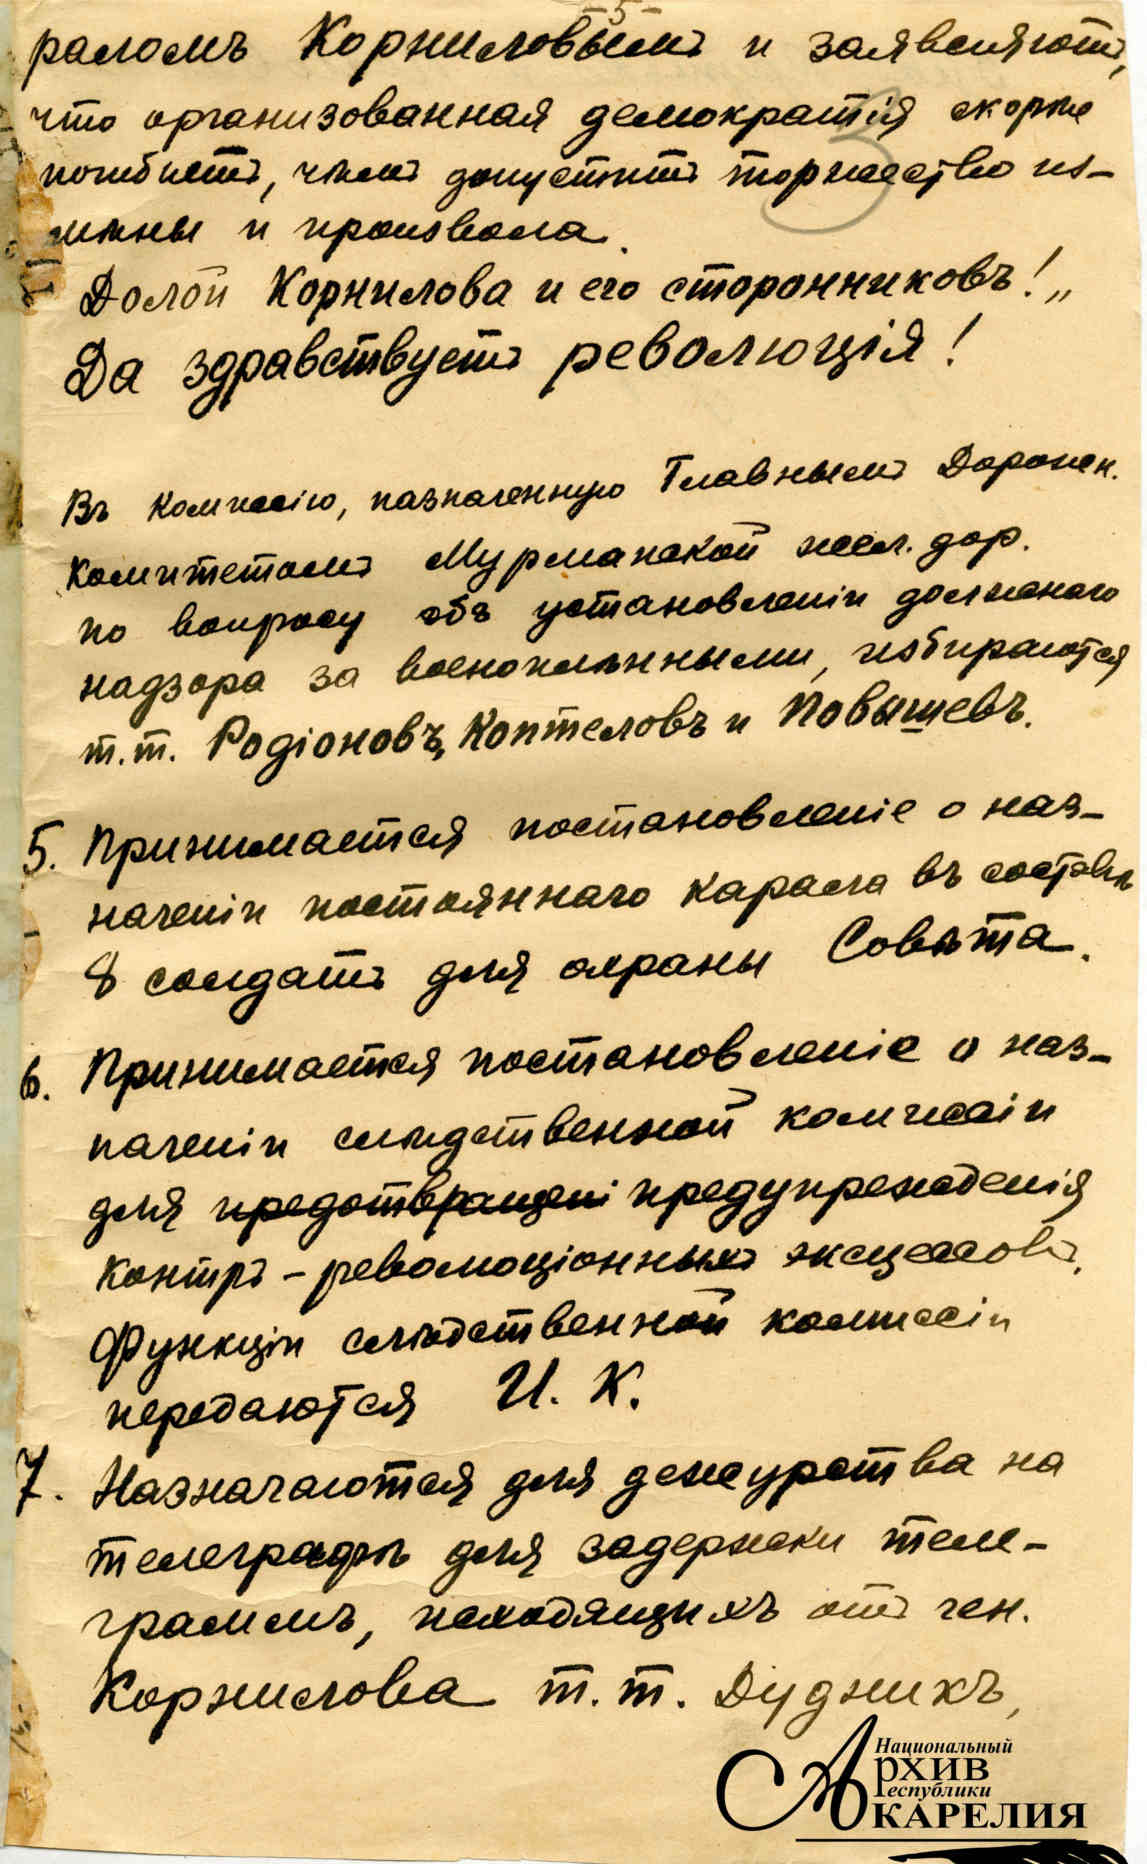 -5-
3
раломъ Корниловымъ и заявляютъ,
что организованная демократія скорѣе
погибнетъ, чѣмъ допуститъ торжество из-
мѣны и произвола.
Долой Корнилова и его сторонниковъ!„
Да здравствуетъ революція!
Въ комиссію, назначенную Главнымъ Дорожн.
Комитетомъ Мурманской жел. дор.
по вопросу объ установленіи должнаго
надзора за военоплѣнными, избираются
т.т. Родіоновъ, Коптеловъ и Повышевъ.
5. Принимается постановленіе о наз-
наченіи постояннаго караула въ составѣ
8 солдатъ для охраны Совѣта.
6. Принимается постановленіе о наз-
наченіи слѣдственной комиссіи
для предотвращені предупрежденія
контръ-революціонныхъ эксцессовъ.
Функціи слѣдственной комиссіи
передаются И. К.
7. Назначаются для дежурства на
телеграфѣ для задержки теле-
граммъ, исходящихъ отъ ген.
Корнилова т.т. Дудникъ,
Национальный
Архив
Республики
Карелия